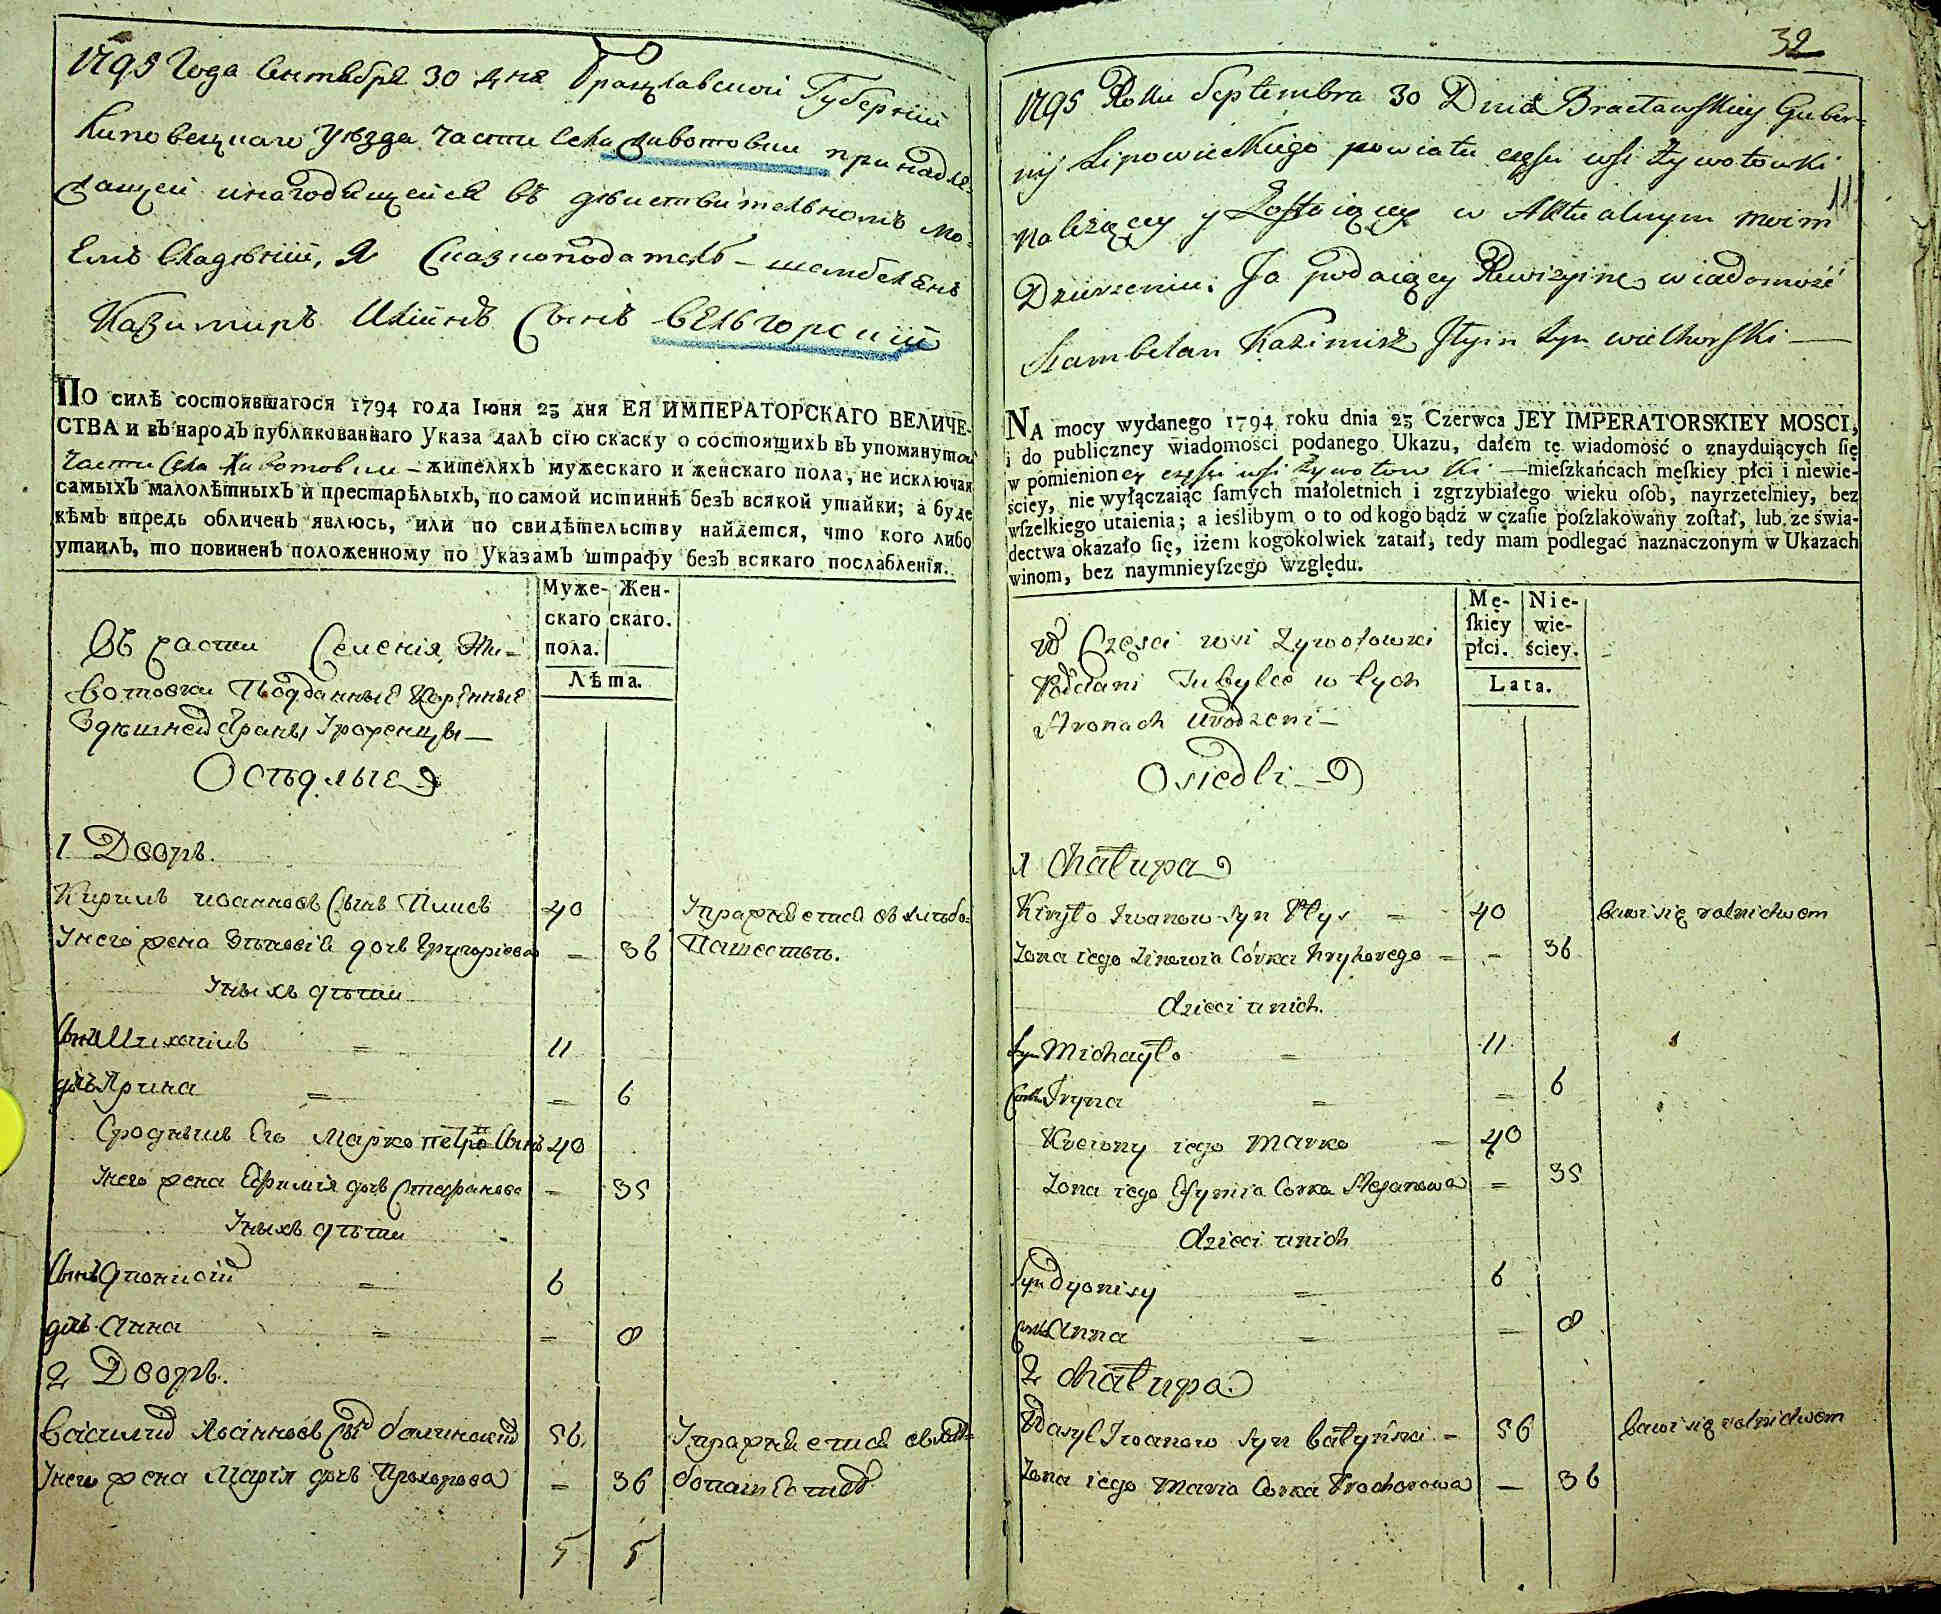 1795 Года Сентября 30 дня Брацлавской Губернiи
Липовецкаго Уезда части Села Животовки принадле-
жащей инаходящейся въ действительномъ мо-
емъ владенiи, Я Сказкоподатель – шамбелянъ
Казимиръ Илiинъ Сынъ Вельгорскiй
ПО силѣ состоявшагося 1794 года Iюня 23 дня ЕЯ ИМПЕРАТОРСКАГО ВЕЛИЧЕ-
СТВА и въ народъ публикованнаго Указа далъ сiю скаску о состоящихъ въ упомянутой
части Села Животовки – жителяхъ мужескаго и женскаго пола, не исключая
самыхъ малолѣтныхъ и престарѣлыхъ, по самой истиннѣ безъ всякой утайки; а буде
кѣмъ впредь обличенъ явлюсь, или по свидѣтельству найдется, что кого либо
утаилъ, то повиненъ положенному по Указамъ штрафу безъ всякаго послабленiя.
Муже-
скаго
пола.
Жен-
скаго.
Лѣта.
Въ части Селенiя Жи-
вотовки Подданные Коренные
Здешней Страны Уроженцы –
Оседлые
1 Дворъ.
Кирилъ Иоанновъ Сынъ Плисъ 40 Упражняется въ хлебо-
Унего жена Зеновiя дочь Григорiева – 36 пашестве.
Уныхъ дети
Сынъ Михаилъ = 11
дочь Ярина = – 6
Сродникъ Его Марко Сынъ 40
Унего жена Ефимiя дочь Стефанова – 35
Уныхъ дети
Сынъ Дионисiй = 6
дочь Анна = – 8
2 Дворъ.
Василий Иоанновъ Сынъ 56 Упражняется въ хле-
Унего жена Марiя дочь Прохорова – 36 бопашестве
5 5
32
1795 Roku Septembra 30 Dnia Bracławskiey Guber-
nij Lipowieckiego powiatu częsci wsi Żywotowki
11
Należącey y Zostaiącey w Aktualnym moim
Dzierzeniu. Ja podaiący Rewizyine wiadomość
Szambelan Kazimirz Ilyin Syn Wielhorski –
NA mocy wydanego 1794 roku dnia 23 Czerwca JEY IMPERATORSKIEY MOSCI,
i do publiczney wiadomości podanego Ukazu, dałem tę wiadomość o znayduiących ſię
w pomienioney częsci wsi Zywotowki – mieſzkańcach męſkiey płci i niewie-
ściey, nie wyłączaiąc ſamych małoletnich i zgrzybiałego wieku osob, nayrzetelniey, bez
wſzelkiego utaienia; a ieślibym o to od kogo bądź w czaſie poſzlakowany zoſtał, lub ze świa-
dectwa okazało ſię, iżem kogokolwiek zataił, tedy mam podlegać naznaczonym w Ukazach
winom, bez naymnieyſzego względu.
Mę-
ſkiey
płci.
Nie-
wie-
ściey.
Lata.
W Częsci wsi Zywotowki
Poddani Tubylce w tych
Stronach Urodzeni –
Osiedli
1 Chałupa
Kiryło Iwanow Syn Plys = 40 bawi się rolnictwem
Zona iego Zinowia Córka Hryhorego = – 36
dzieci u nich.
Syn Michayło = 11
Corka Iryna = – 6
Krewny iego Marko – 40
Zona iego Efymia Corka Stefanowa = 35
dzieci u nich
Syn Dyonisy = 6
Corka Anna = – 8
2 Chałupa
Wasyl Iwanow Syn Bałyński – 56 bawi się rolnictwem
Zona iego Maria Corka Prochorowa – 36